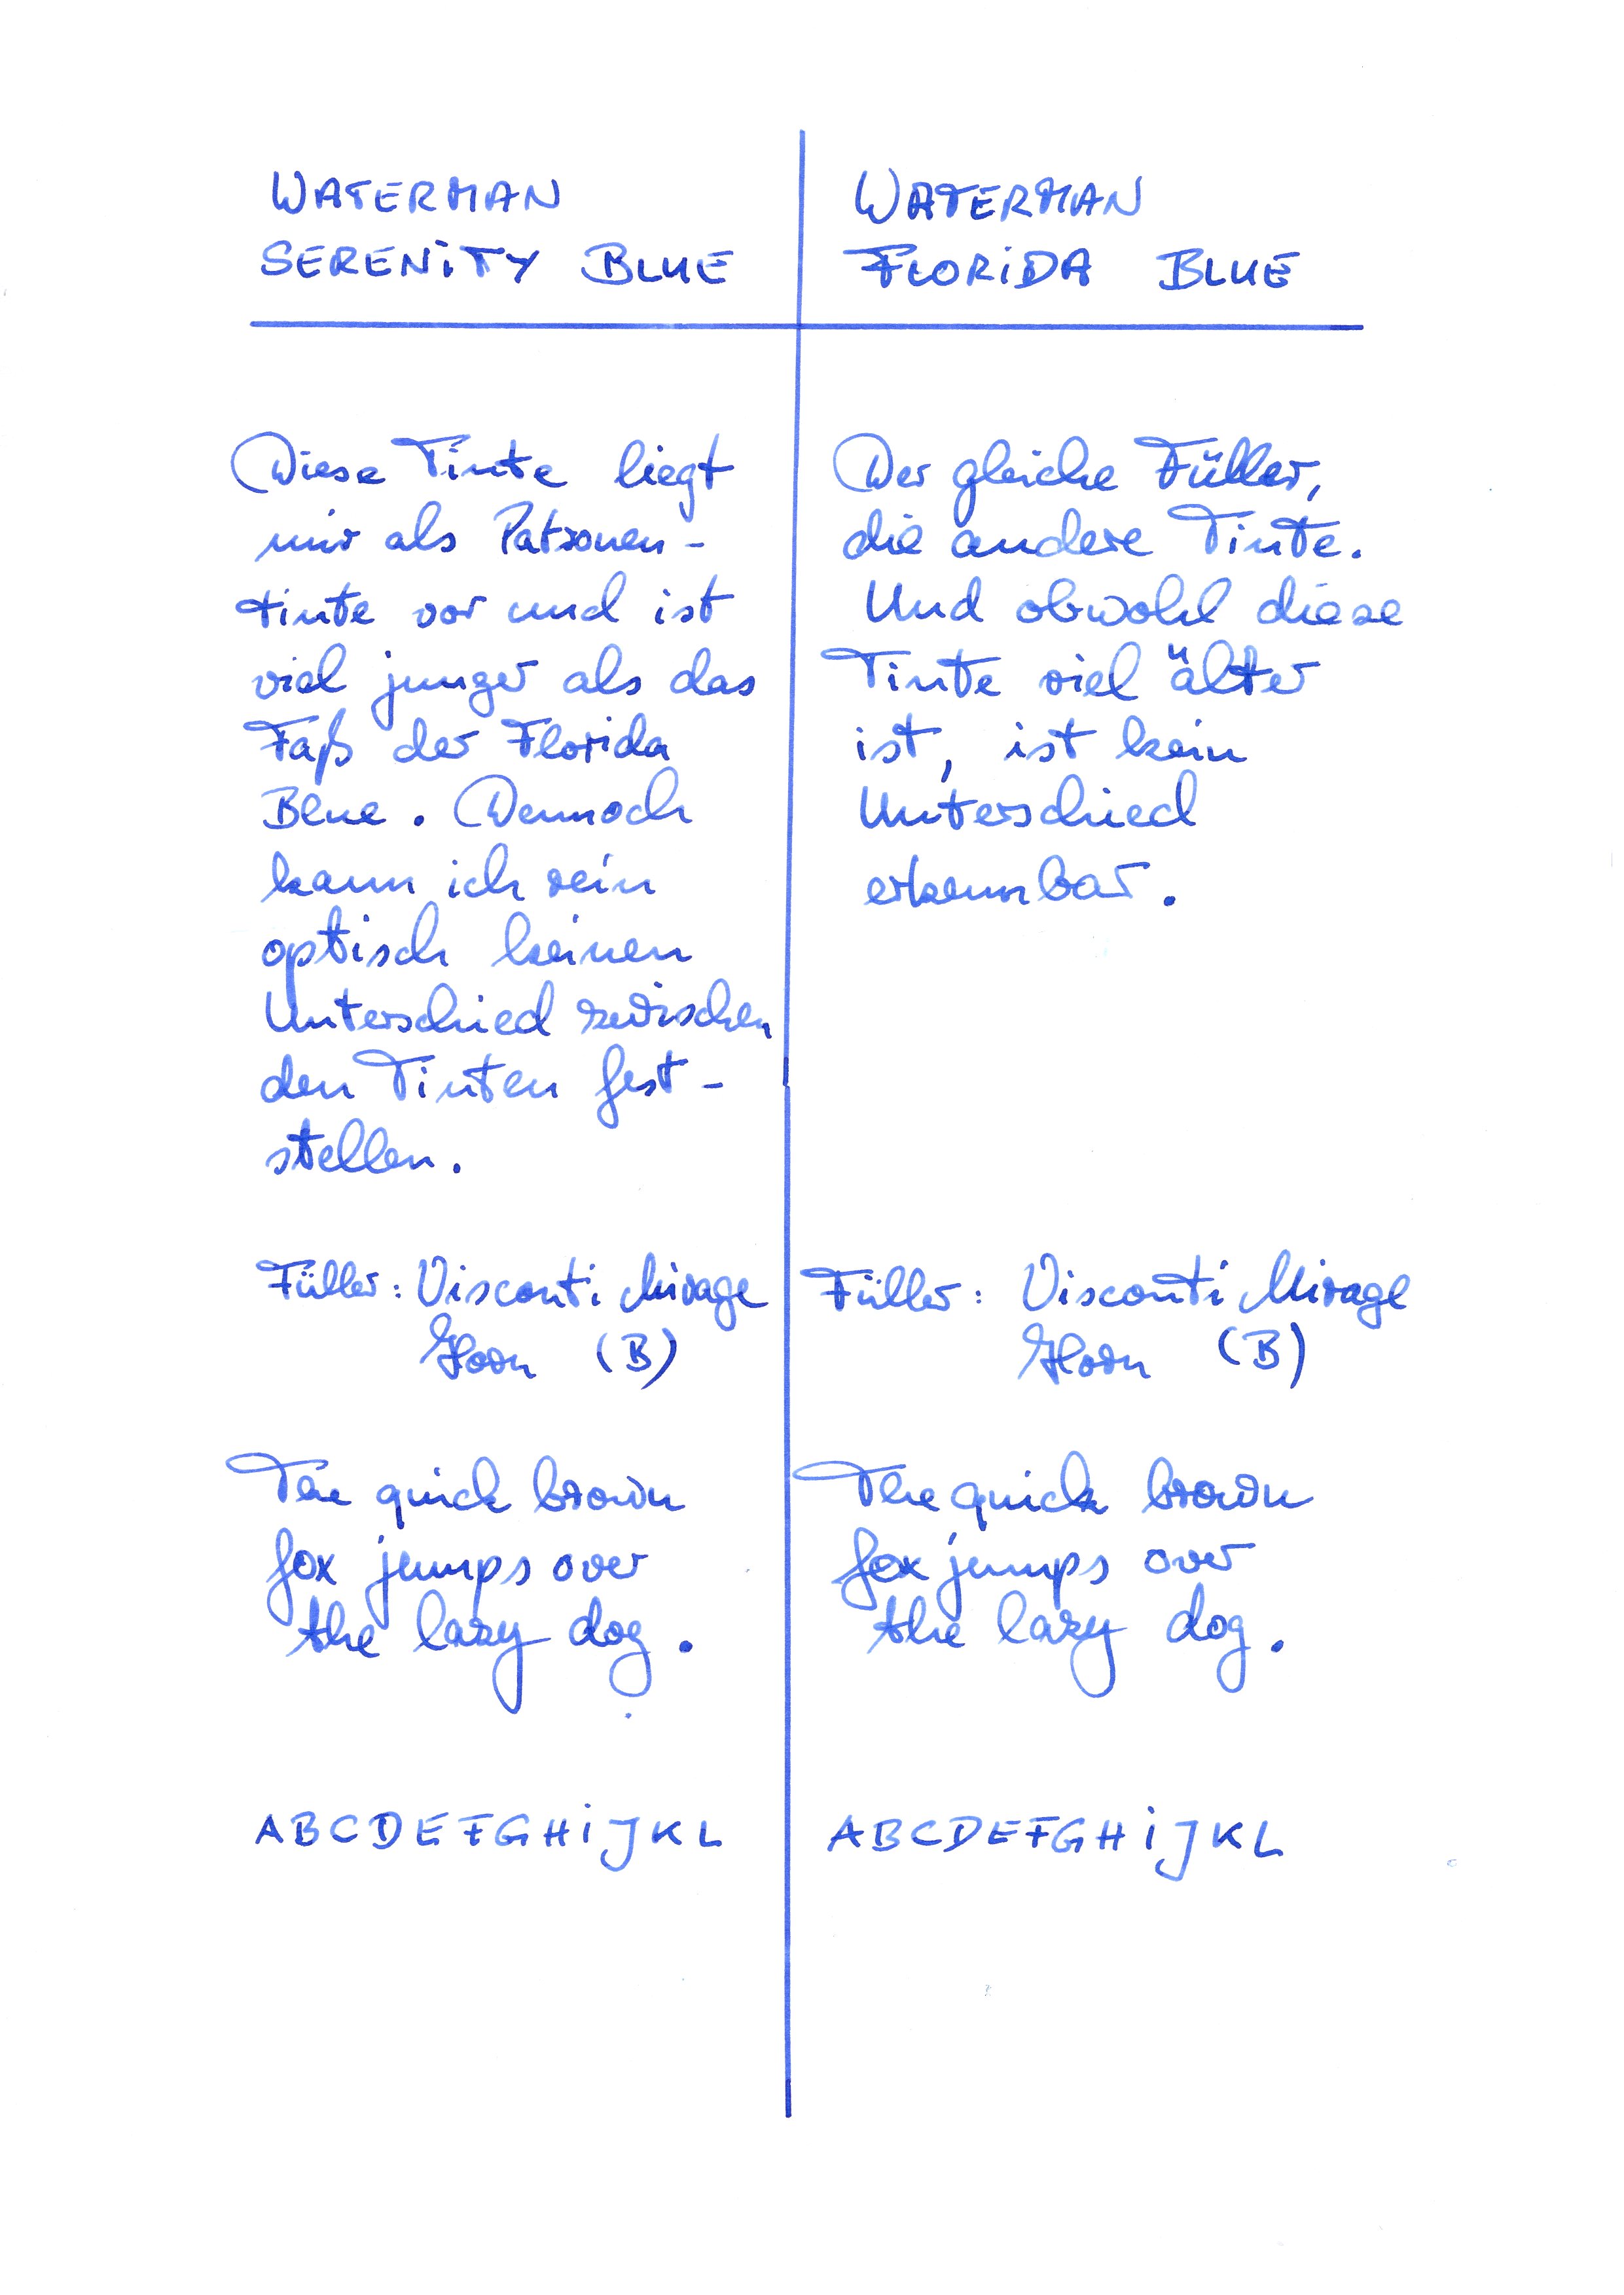 WATERMAN
SERENiTY BLUE
Diese Tinte liegt
mir als Patronen-
tinte vor und ist
viel junger als das
Faß der Florida
Blue. Dennoch
kann ich rein
optisch keinen
Unterschied zwischen
den Tinten fest-
stellen.
Füller: Visconti Mirage
Horn (B)
The quick brown
fox jumps over
the lazy dog.
ABCDEFGHiJKL
WATERMAN
FLORiDA BLUE
Der gleiche Füller,
die andere Tinte.
Und obwohl diese
Tinte viel älter
ist, ist kein
Unterschied
erkennbar.
Füller: Visconti Mirage
Horn (B)
The quick brown
fox jumps over
the lazy dog.
ABCDEFGHiJKL